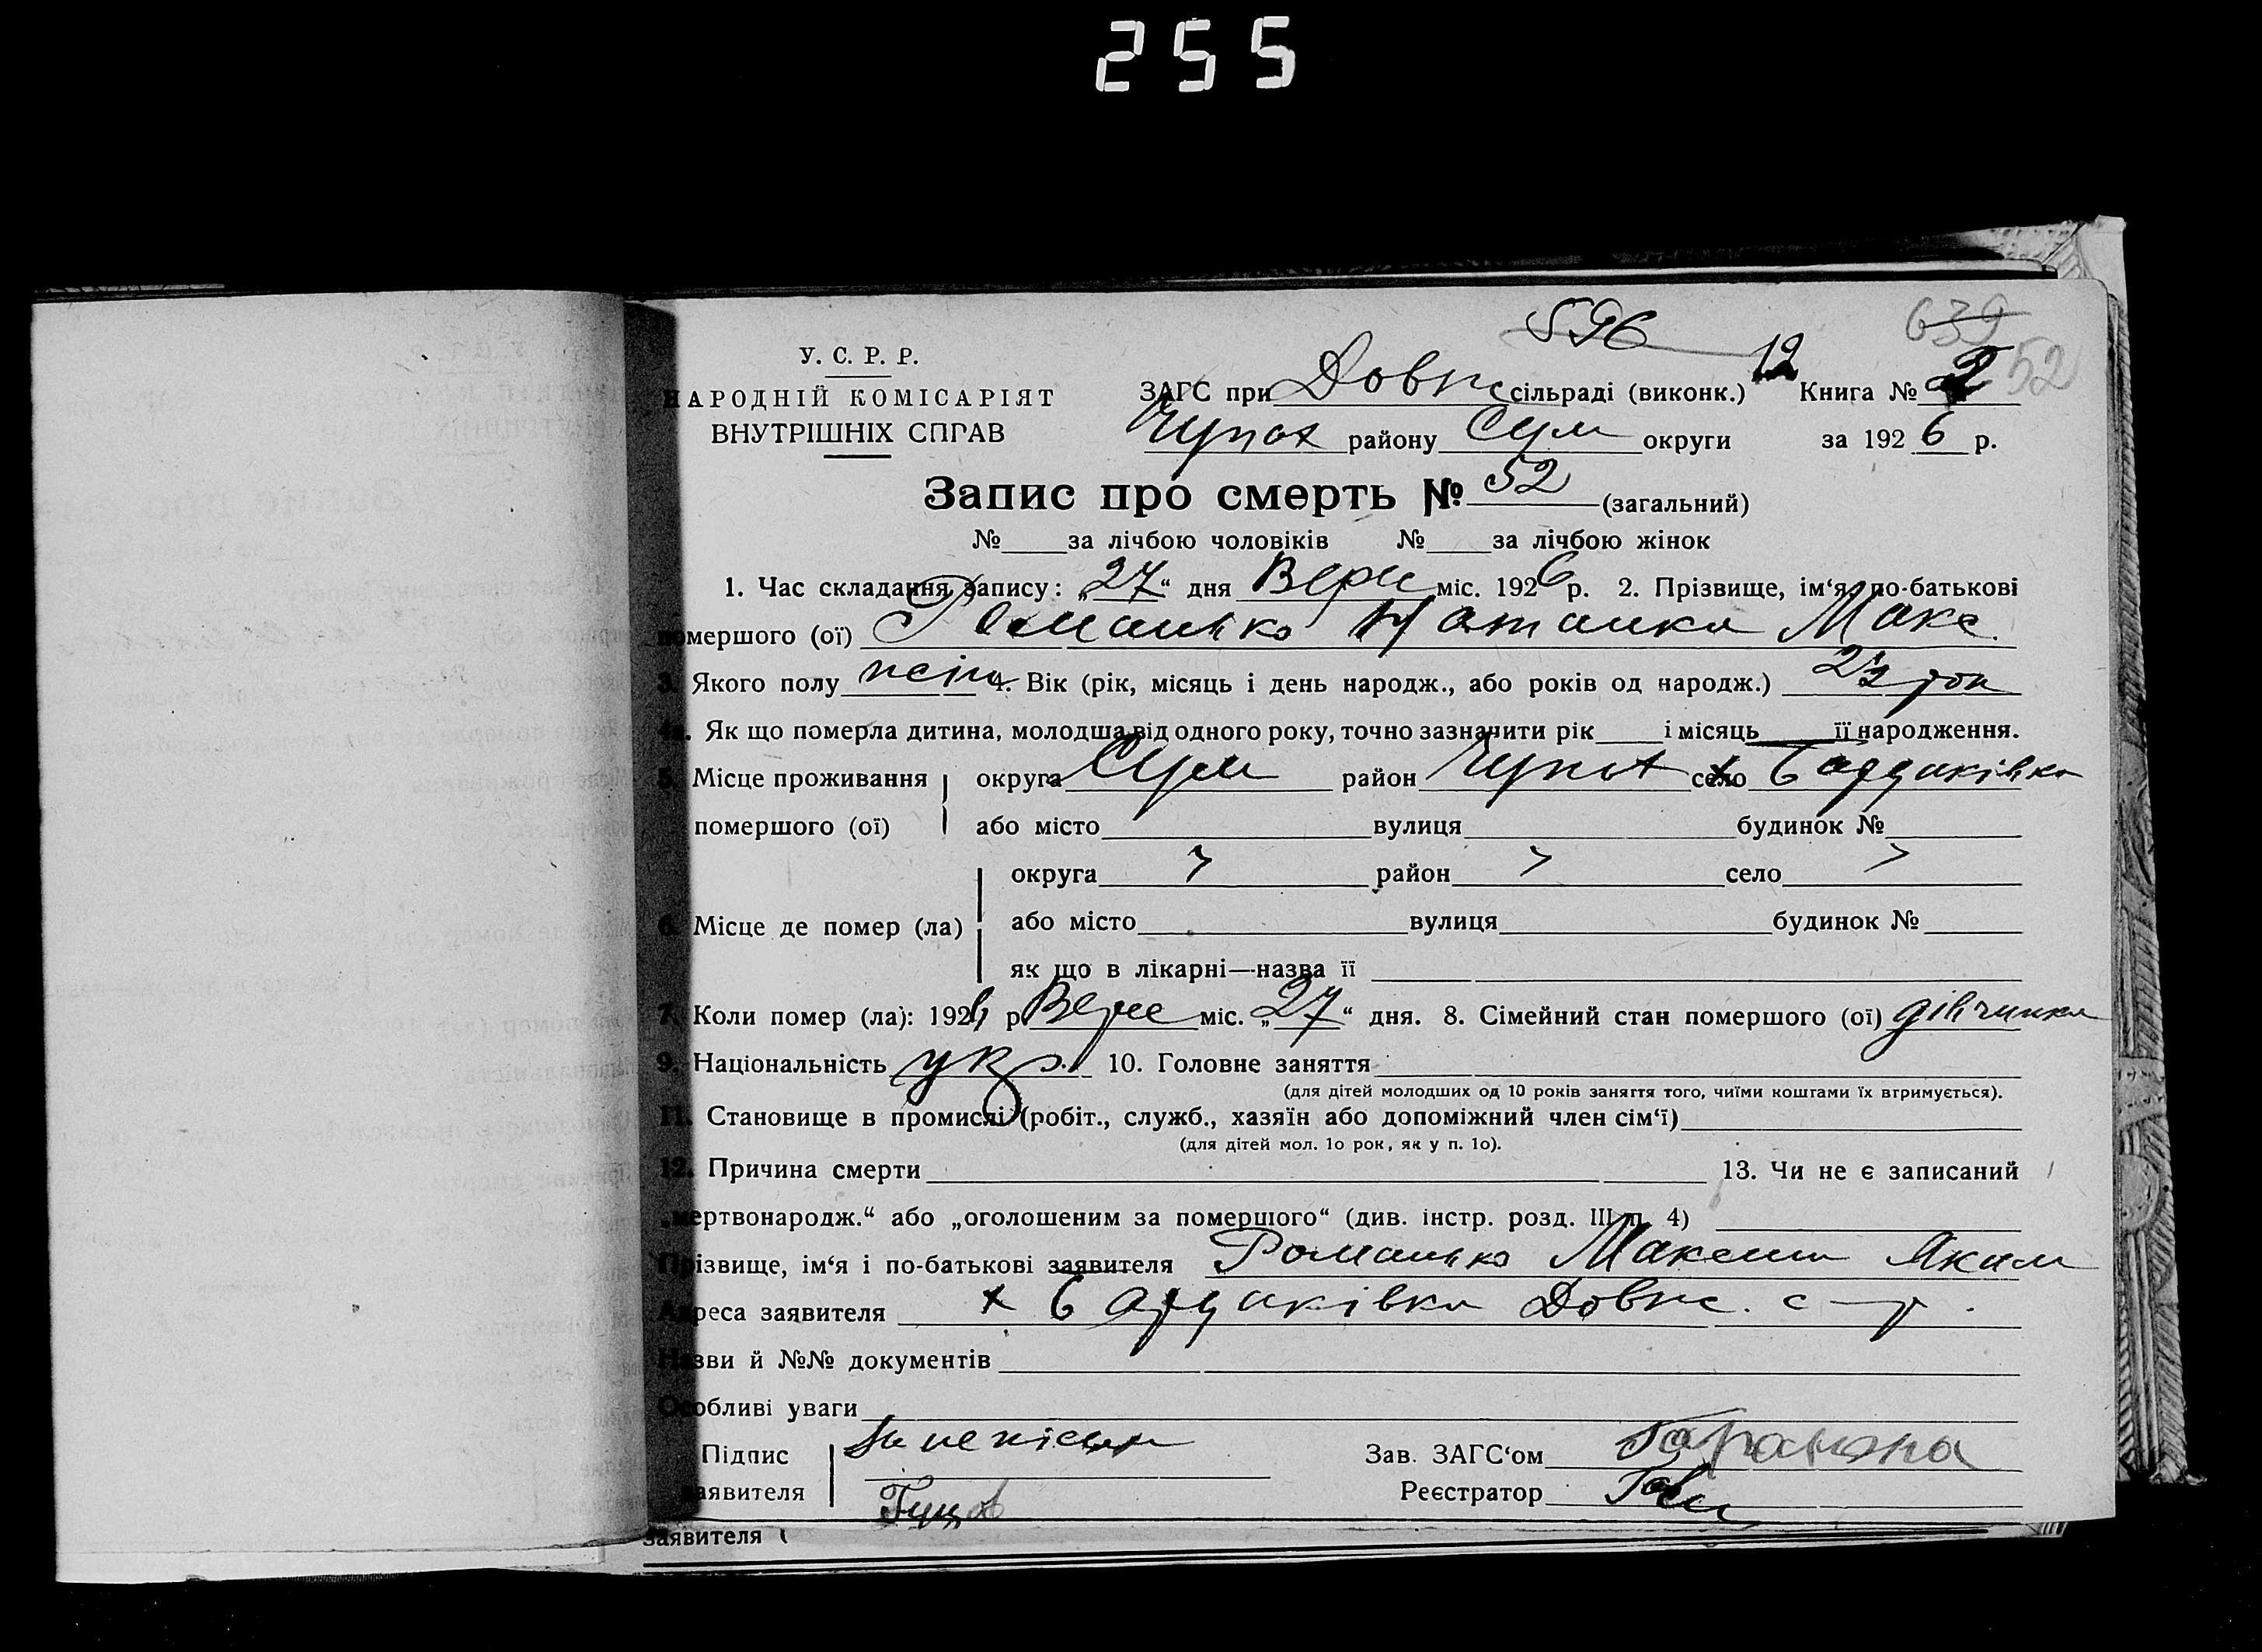 255
596 12 639
52
У. С. Р. Р.
НАРОДНІЙ КОМІСАРІЯТ
ВНУТРІШНІХ СПРАВ
ЗАГС при Довж сільраді (виконк.) Книга № 2
Чупах району Сум округи за 1926 р.
Запис про смерть № 52 (загальний)
№ за лічбою чоловіків № за лічбою жінок
1. Час складання запису: „27“ дня Вере міс. 1926 р. 2. Прізвище, ім‘я, по-батькові
помершого (ої) Романько Наталка Макс.
3. Якого полу жіно 4. Вік (рік, місяць і день народж., або років од народж.) рок
4а. Як що померла дитина, молодша від одного року, точно зазначити рік і місяць її народження.
5. Місце проживання округа Сум район Чупах село х
помершого (ої) або місто вулиця будинок №
округа район село
6. Місце де помер (ла) або місто вулиця будинок №
як що в лікарні—назва її
7. Коли помер (ла): 1926 р. Вере міс. „27“ дня. 8. Сімейний стан помершого (ої) дівчинка
9. Національність укр. 10. Головне заняття
(для дітей молодших од 10 років заняття того, чиїми коштами їх втримується).
11. Становище в промислі (робіт., служб., хазяїн або допоміжний член сім‘ї)
(для дітей мол. 1о рок, як у п. 1о).
12. Причина смерти 13. Чи не є записаний
„мертвонародж.“ або „оголошеним за помершого“ (див. інстр. розд. III п. 4)
Прізвище, ім‘я і по-батькові заявителя Романько Максим Яким
Адреса заявителя х Довж. с-р.
Назви й №№ документів
Особливі уваги
Підпис Зав. ЗАГС‘ом
заявителя Реєстратор
заявителя